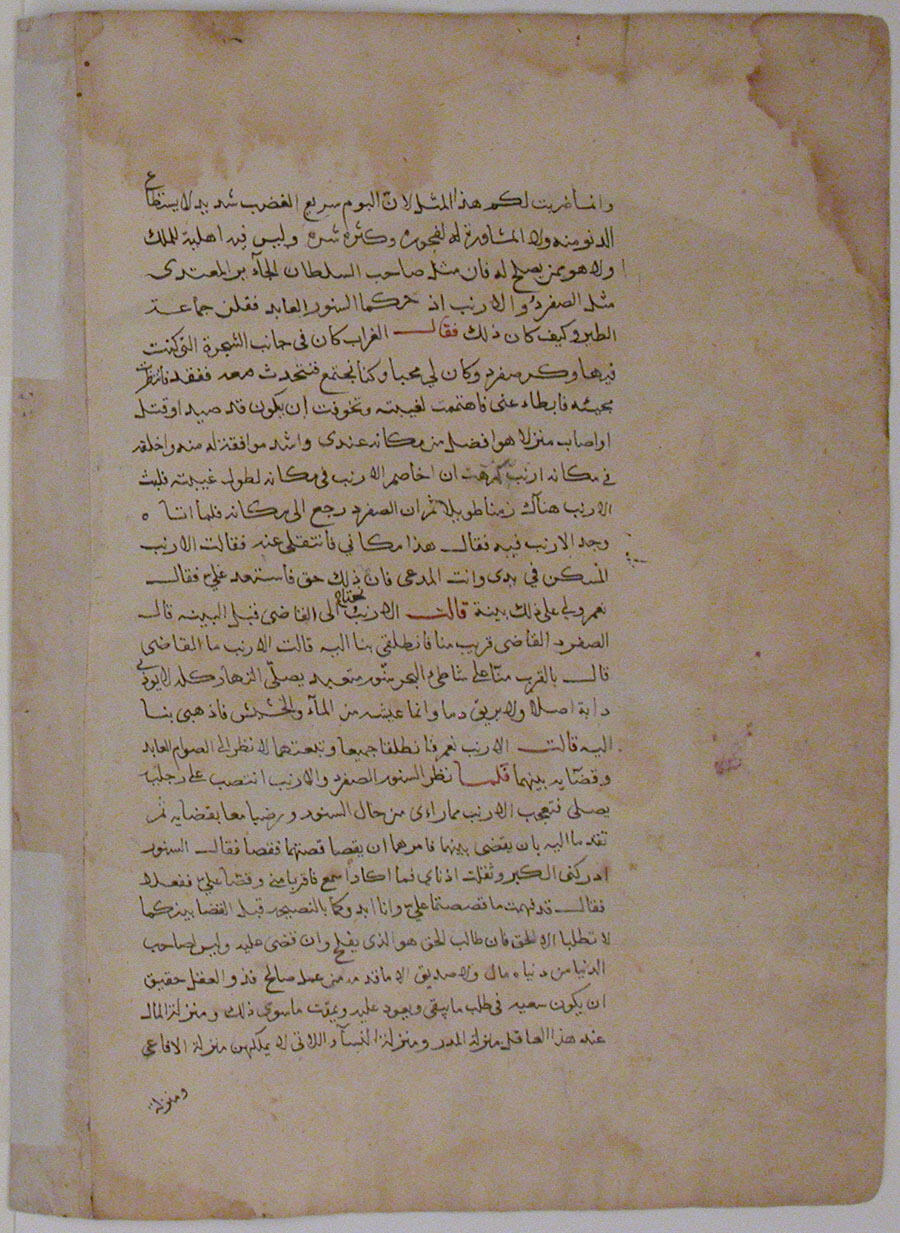 وانما ضربت لكم هذا المثل لان البوم سريع الغضب شديد لا يستطاع
الدنو منه ولا المشاورة له لفجوره وكثرة شره وليس فيه اهلية للملك
ولا هو بمن يصلح له فان مثل صاحب السلطان الجآئر المعتدى
مثل الصفرد والارنب اذ حكما السنور العابد فقلن جماعة
الطير وكيف كان ذلك فقال الغراب كان فى جانب الشجرة التى كنت
فيها وكر صفرد وكان لي محبا وكنا نجتمع فنتحدث معه ففقد فانتظرت
مجيئه فابطاء عنى فاهتممت لغيبته وتخوفت ان يكون قد صيد او قتل
او اصاب منزلا هو افضل من مكانه عندى واشد موافقة له منه واخلفه
في مكانه ارنب كرهت ان اخاصم الارنب فى مكانه لطول غيبته فلبث
الارنب هناك زمنا طويلا ثم ان الصفرد رجع الى مكانه فلما اتاه
وجد الارنب فيه فقال هذا مكاني فانتقلى عنه فقالت الارنب
المسكن في يدى وانت المدعى فان ذلك حق فاستعد علي فقال
نعم ولي على ذلك بينة قالت الارنب نحتاج الى القاضى قبل البينه قال
الصفرد القاضى قريب منا فانطلقى بنا اليه قالت الارنب ما القاضى
قال بالقرب منا على شاطئ البحر سنور متعبد يصلى النهار كله لا يوذى
دابة اصلا ولا يريق دما وانما عيشه من المآء والحشيش فاذهبى بنا
اليه قالت الارنب نعم فانطلقا جميعا وتبعتهما لانظر الى الصوام العابد
وقضآيه بينهما فلما نظر السنور الصفرد والارنب انتصب على رجليه
يصلى فتعجب الارنب مما راءى من حال السنور ورضيا معا بقضايه ثم
تقدما اليه بان يقضى بينهما فامرهما ان يقصا قصتهما فقصا فقال السنور
ادركنى الكبر وثقلت اذناي فما اكاد اسمع فاقربا منى وقصا علي ففعلا
فقال قد فهمت ما قصصتما علي وانا ابدوكما بالنصيحه قبل القضا بينكما
لا تطلبا الا الحق فان طالب الحق هو الذى يفلح وان قضى عليه وليس لصاحب
الدنيا من دنياه مال ولا صديق الا ما قدمه من عمل صالح فذو العقل حقيق
ان يكون سعيه فى طلب ما يبقى ويعود عليه ويمقت ما سوى ذلك ومنزلة المال
عند هذا العاقل منزلة المدر ومنزلة النسآء اللاتى لا يملكهن منزلة الافاعى
ومنزلة